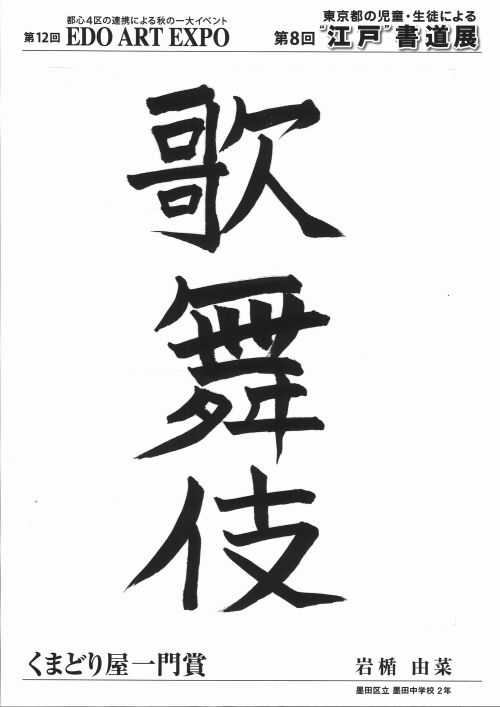 都心4区の連携による秋の一大イベント
第12回 EDO ART EXPO
東京都の児童・生徒による
第8回 "江戸"書道展
歌舞伎
くまどり屋一門賞
岩楯 由菜
墨田区立 墨田中学校 2年